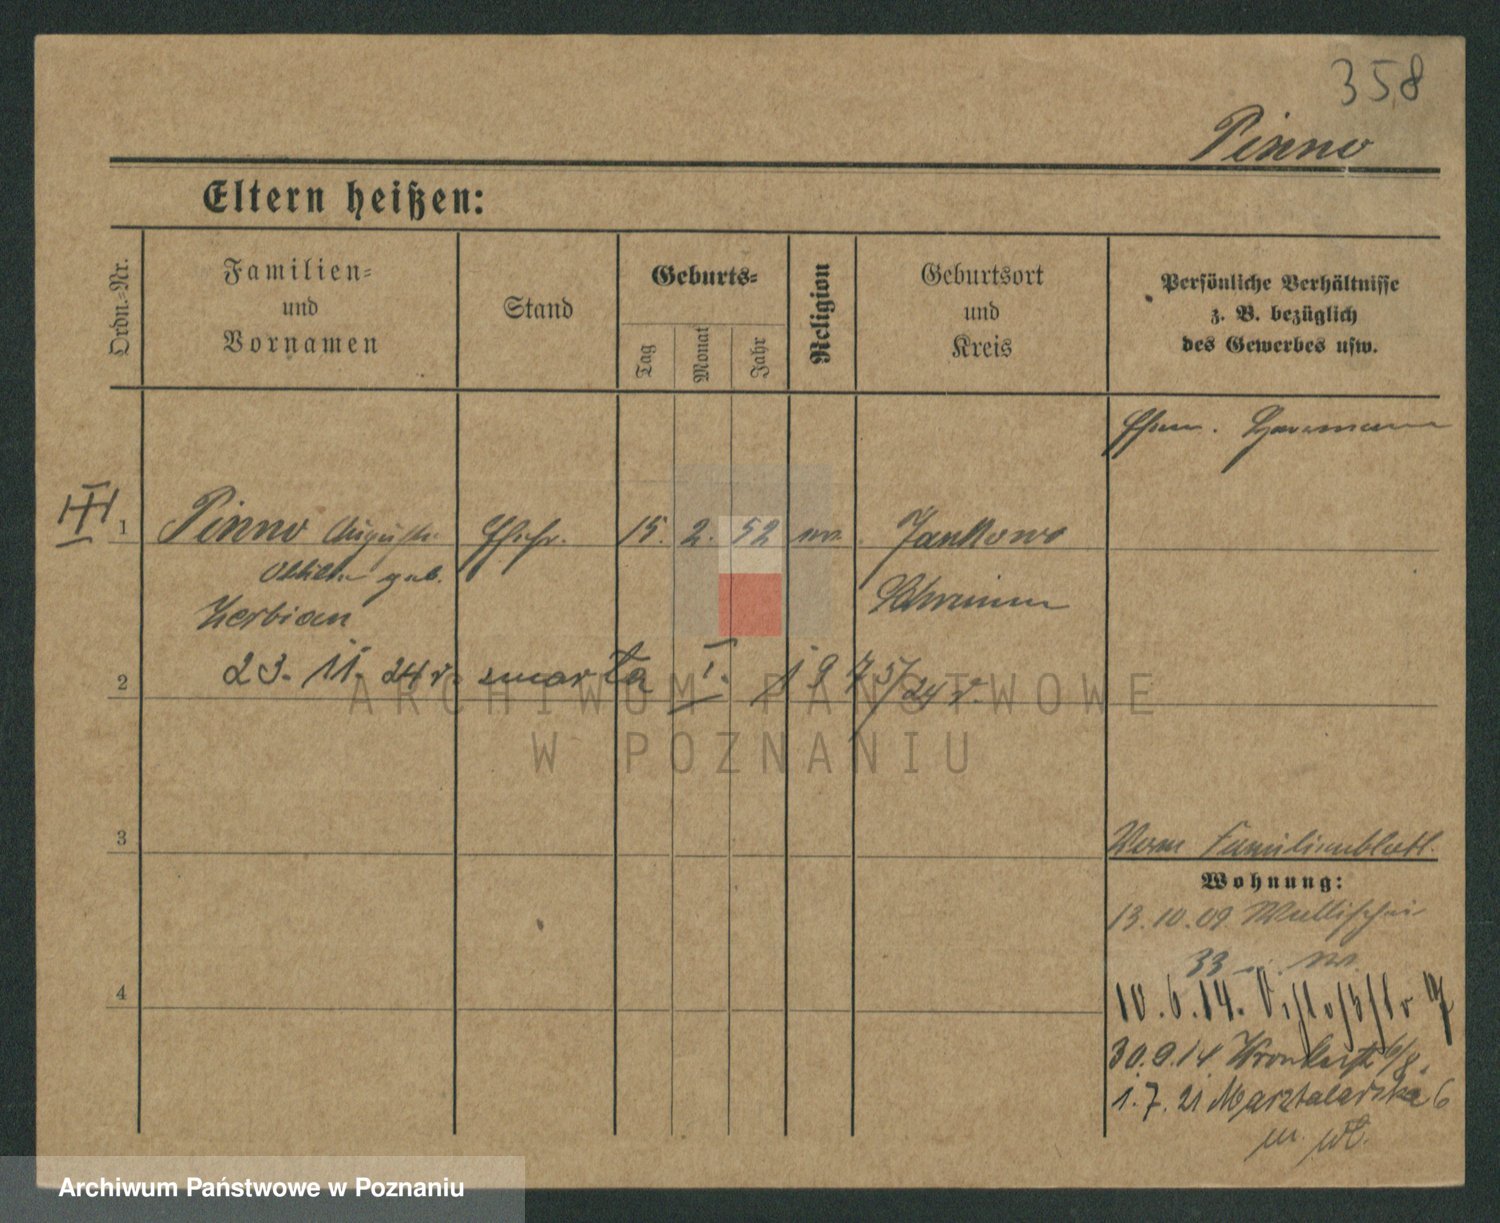 358
Pinno
Eltern heißen:
Ordn.-Nr.
Familien-
und
Vornamen
Stand
Geburts-
Tag
Monat
Jahr
Religion
Geburtsort
und
Kreis
Persönliche Verhältnisse
z. B. bezüglich
des Gewerbes usw.
III
1 Pinno Auguste 15. 2. 52 Jankowo
geb. Schrimm
Zerbian
2 23. 11. 24 r. zmarła I. 1975/24 r.
3
Vom Familienblatt.
Wohnung:
13.10.09 Wallischei
33
4
10.6.14. Schloßstr 7
30.9.14 Wronkerstr 6/8.
1.7.21 Masztalarska 6
ARCHIWUM PAŃSTWOWE
W POZNANIU
Archiwum Państwowe w Poznaniu